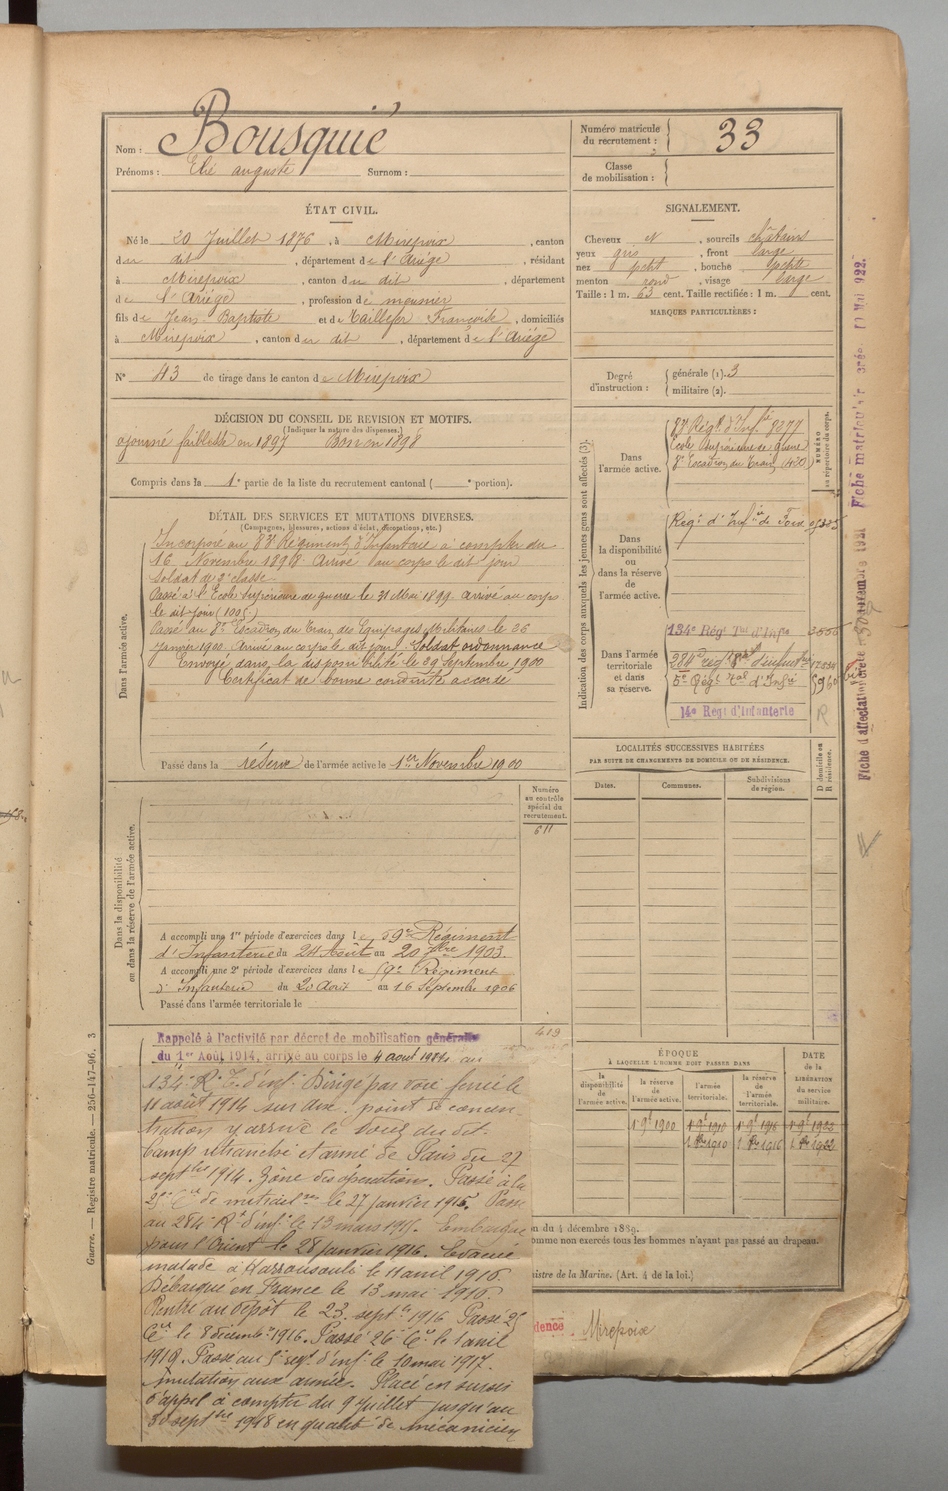 Nom : Bousquié
Prénoms : Elie auguste Surnom :
Numéro matricule du recrutement : 33
Classe de mobilisation :
ÉTAT CIVIL.
Né le 20 Juillet 1876, à Mirepoix, canton
du dit, département de l'Ariège, résidant
à Mirepoix, canton du dit, département
de l'Ariège, profession de meunier
fils de Jean Baptiste et de Françoise, domiciliés
à Mirepoix, canton du dit, département de l'Ariège
N° 43 de tirage dans le canton de Mirepoix
SIGNALEMENT.
Cheveux et, sourcils châtains
yeux gris, front large
nez petit, bouche petite
menton rond, visage large
Taille : 1 m. 63 cent. Taille rectifiée : 1 m. cent.
MARQUES PARTICULIÈRES :
Degré d'instruction : générale (1). 3
militaire (2).
DÉCISION DU CONSEIL DE REVISION ET MOTIFS.
(Indiquer la nature des dispenses.)
ajourné faiblesse en 1897 Bon en 1898
Compris dans la 1e partie de la liste du recrutement cantonal ( e portion).
DÉTAIL DES SERVICES ET MUTATIONS DIVERSES.
(Campagnes, blessures, actions d'éclat, décorations, etc.)
Dans l'armée active.
Incorporé au 83e Régiment d'Infanterie à compter du
16 Novembre 1898. Arrivé au corps le dit jour
Soldat de 2e classe
Passé à l'Ecole Supérieure de guerre le 31 Mai 1899. arrivé au corps
le dit jour
Passé au 8e Escadron du Train des Equipages Militaires le 26
Janvier 1900. Arrivé au corps le dit jour. Soldat ordonnance
Envoyé dans la disponibilité le 29 Septembre 1900
Certificat de bonne conduite accordé
Passé dans la réserve de l'armée active le 1er Novembre 1900
Indication des corps auxquels les jeunes gens sont affectés (3).
NUMÉRO au répertoire du corps.
Dans l'armée active.
83e Régt d'Infie 8277
Ecole Supérieure de Guerre
8e Escadron du Train (420)
Dans la disponibilité ou dans la réserve de l'armée active.
Regt d'Infie de Foix
Dans l'armée territoriale et dans sa réserve.
134e Régt Tal d'Infie
284e regt d'infanterie
5e Régt Tal d'Infie 5960
14e Régt d'Infanterie R
LOCALITÉS SUCCESSIVES HABITÉES
PAR SUITE DE CHANGEMENTS DE DOMICILE OU DE RÉSIDENCE.
Dates. Communes. Subdivisions de région.
D domicile ou R résidence.
Dans la disponibilité ou dans la réserve de l'armée active.
Numéro au contrôle spécial du recrutement.
611
A accompli une 1re période d'exercices dans le 59e Régiment
d'Infanterie du 24 Août au 20 7bre 1903.
A accompli une 2e période d'exercices dans le 59e Régiment
d'Infanterie du 20 Août au 16 Septembre 1906
Passé dans l'armée territoriale le
Rappelé à l'activité par décret de mobilisation générale
du 1er Août 1914, arrivé au corps le 4 aout 1914 au
134e R. T. d'inf. Dirigé par voie ferrée le
11 août 1914 sur point de concen-
tration y arrivé le
Camp retranché et armé de Paris du 27
septbre 1914. Zône des opérations. Passé à la
25e Cie de le 27 janvier 1916. Passé
au 284e Rt d'inf. le 13 mars 191 . Embarqué
pour l'Orient le 28 janvier 1916. Evacué
malade à le 11 avril 1916.
Débarqué en France le 13 mai 1916.
Rentré au Dépôt le 23 septbre 1916 Passé 25
Cie le 8 décembre 1916. Passé 26e Cie le 1 avril
191 . Passé au 5e regt d'inf. le 10 mai 1917.
Mutation aux armées. Placé en sursis
d'appel à compter du 9 juillet jusqu'au
30 septbre 1918 en qualité de mécanicien
419
ÉPOQUE
À LAQUELLE L'HOMME DOIT PASSER DANS
la disponibilité de l'armée active. la réserve de l'armée active. l'armée territoriale. la réserve de l'armée territoriale.
DATE de la LIBÉRATION du service militaire.
1 9bre 1900 1 9bre 1910 1 9bre 1916 1 9bre 1922
n du 4 décembre 1889.
omme non exercés tous les hommes n'ayant pas passé au drapeau.
nistre de la Marine. (Art. 4 de la loi.)
dence Mirepoix
Guerre. — Registre matricule. — 256-147-96. 3
Fiche matriculaire créée 10 Mai 922.